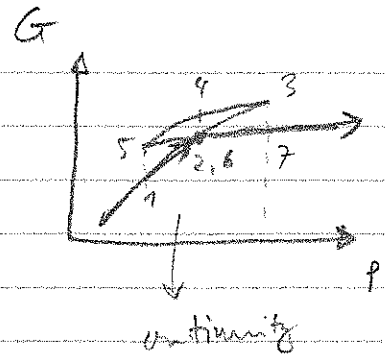 G
4 3
5 2,6 7
1
P
continuity